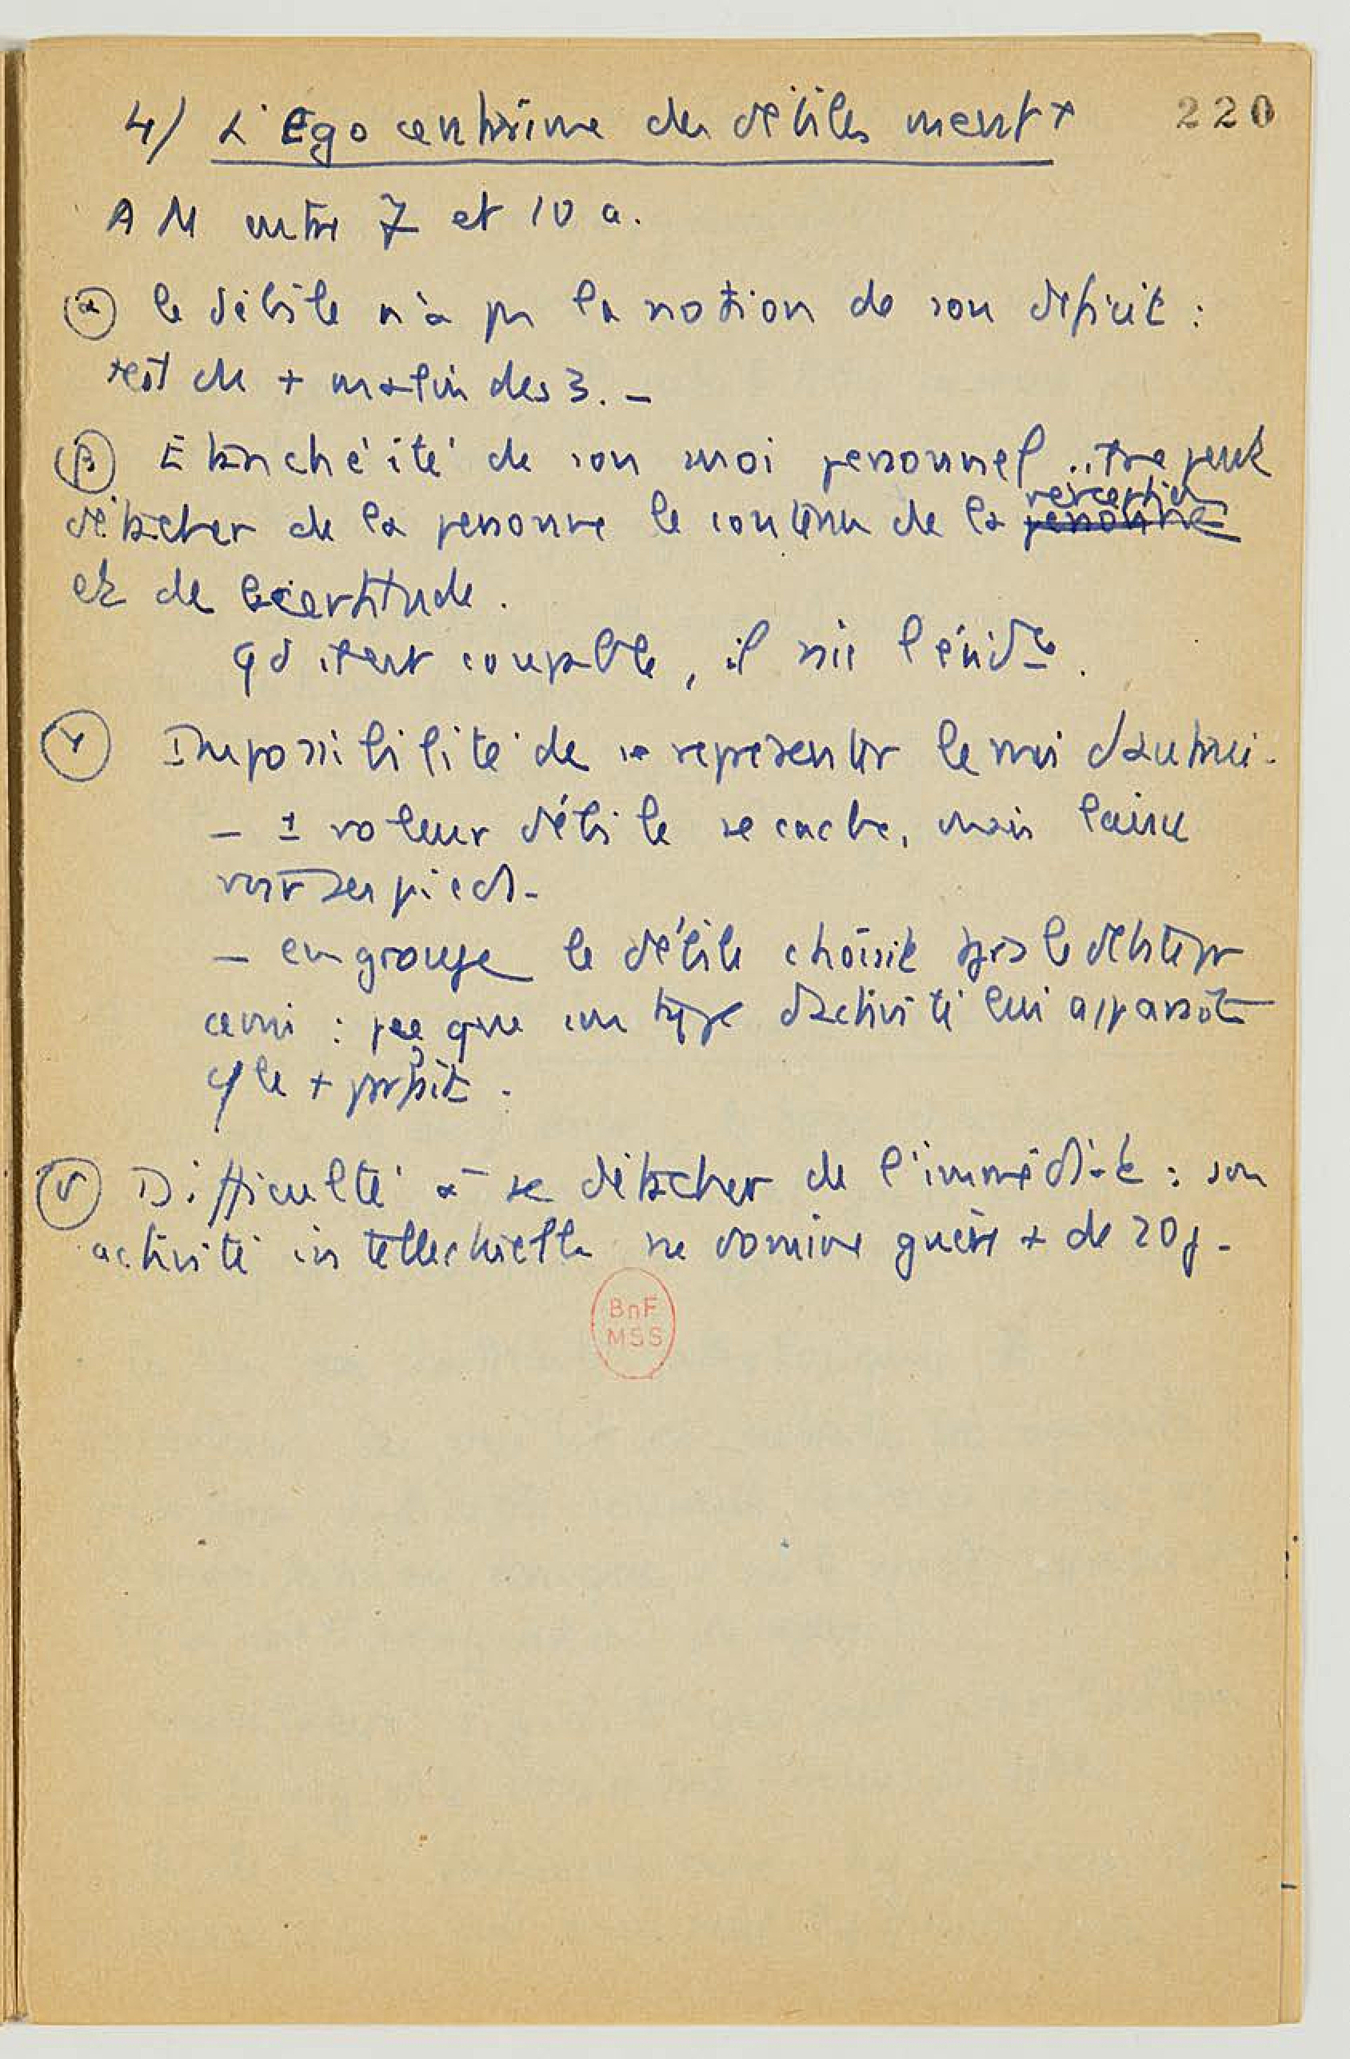 220
4/ L'Egocentrisme des débiles ment x
A M entre 7 et 10 a.
α le débile n'a pas la notion de son déficit :
est le + malin des 3. —
β Etanchéité de son moi personnel .. peut
détacher de la personne le contenu de la personne perception
et de certitude.
qd il est coupable, il nie l'évidce.
γ Impossibilité de se représenter le moi d'autrui.
– 1 voleur débile se cache, mais laisse
voir ses pieds –
– en groupe le débile choisit le débile pr
ami : pce que un type d'activité lui apparaît
cc le + parfait.
δ Difficulté à se détacher de l'immédiat : son
activité intellectuelle ne domine guère + de 20 j –
BnF
MSS